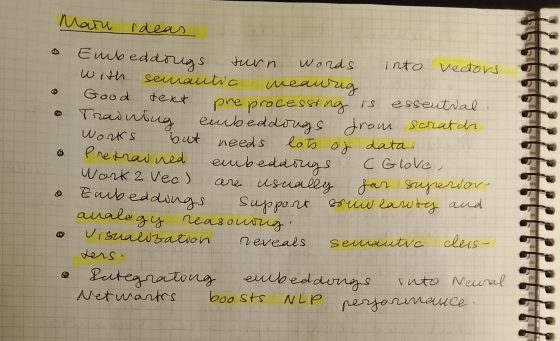 Main ideas
• Embeddings turn words into vectors
with semantic meaning
• Good text preprocessing is essential.
• Training embeddings from scratch
works but needs lots of data.
• Pretrained embeddings (GloVe,
Work2Vec) are usually far superior
• Embeddings support similarity and
analogy reasoning.
• Visualization reveals semantic clus-
ters.
• Integrating embeddings into Neural
Networks boosts NLP performance.